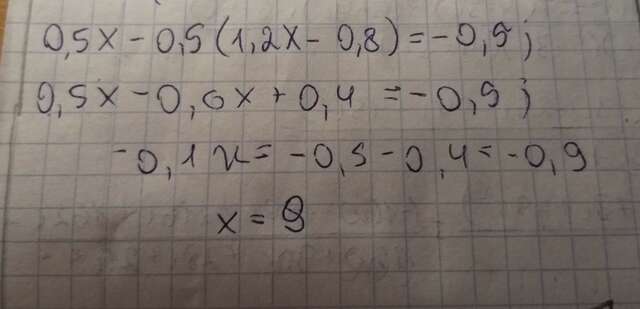 0,5x - 0,5(1,2x - 0,8) = -0,5;
0,5x - 0,6x + 0,4 = -0,5;
-0,1x = -0,5 - 0,4 = -0,9
x = 9